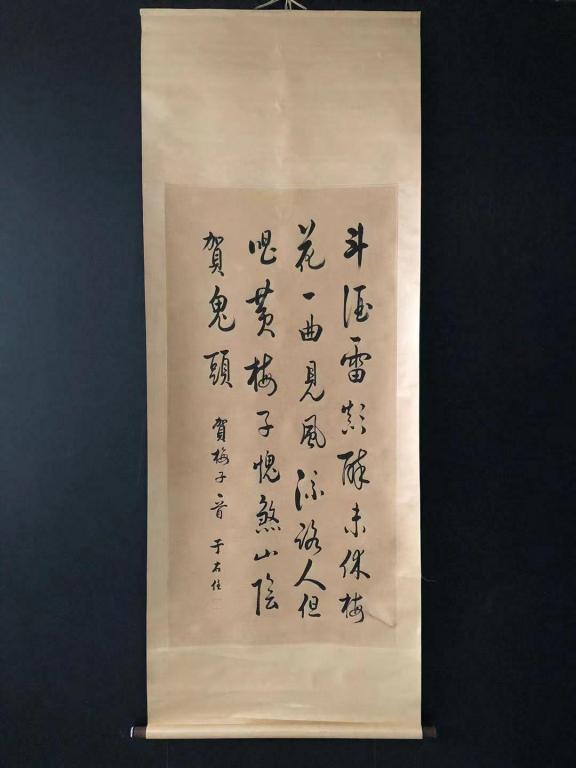 斗酒雷顛醉未休梅
花一曲見風流路人但
唱黄梅子愧煞山陰
賀鬼頭
賀梅子一首 于右任